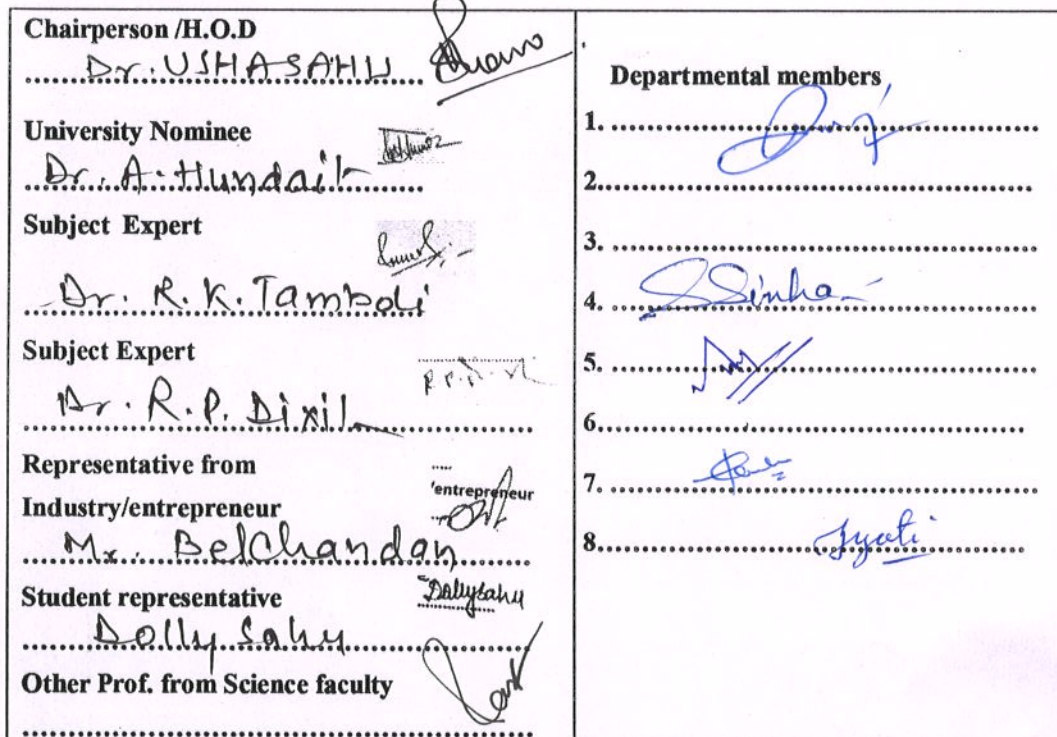 Chairperson /H.O.D
Dr. USHA SAHU
University Nominee
Dr. A. Hundait
Subject Expert
Dr. R. K. Tamboli
Subject Expert
Dr. R. P. Dixit
Representative from
'entrepreneur
Industry/entrepreneur
Mr. BelChandan
Student representative
Dolly Sahu
Dolly Sahu
Other Prof. from Science faculty
Departmental members
1.
2.
3.
4. SSinha
5.
6.
7.
8. Jyoti